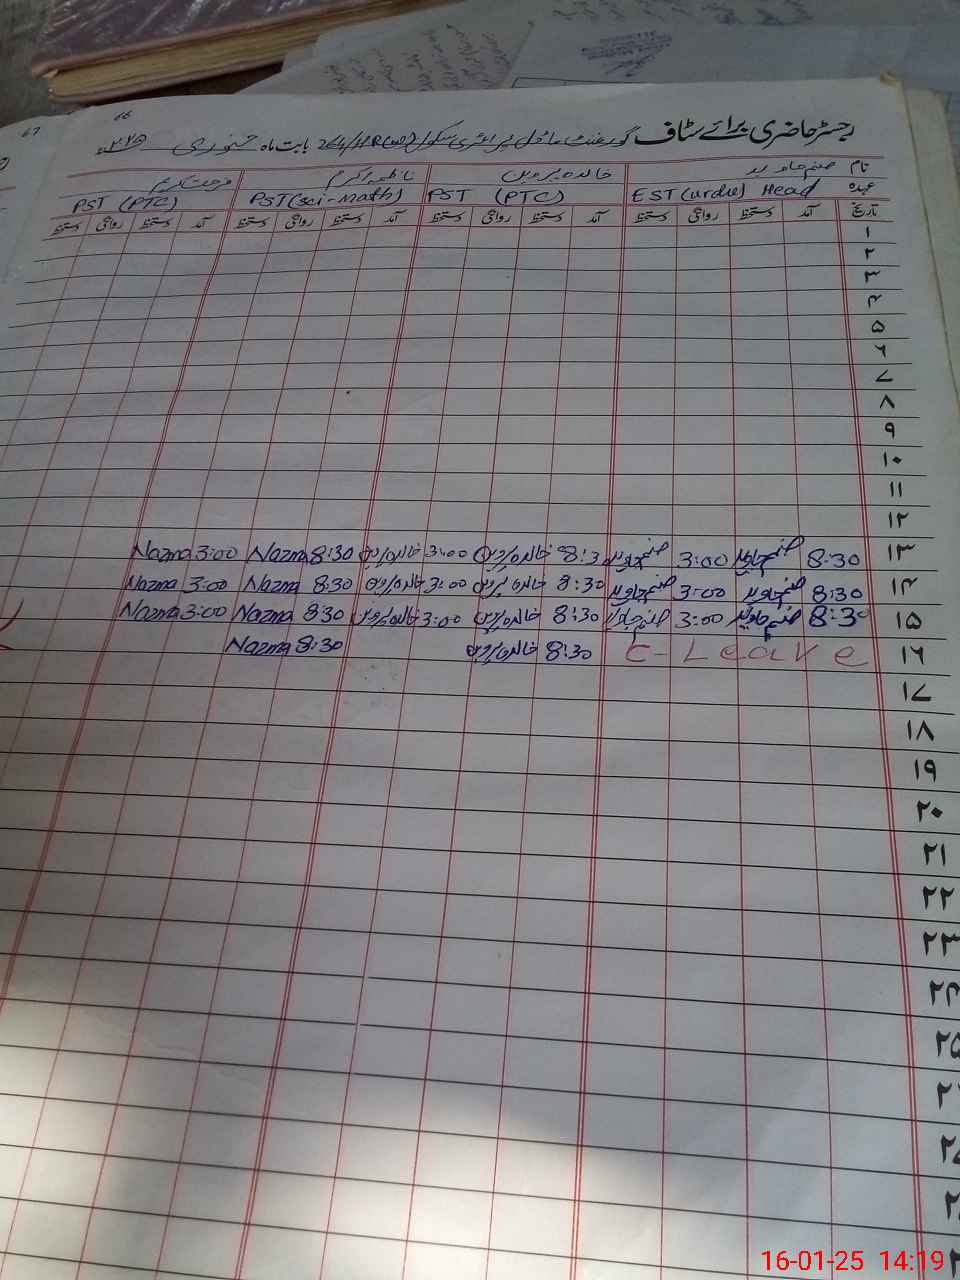 66
67
رجسٹر حاضری برائے سٹاف گورنمنٹ ماڈل پرائمری سکول 264/HR بابت ماہ جنوری
نام صنم جاوید خالدہ پروین ناظمہ اکرم فرحت کریم
عہدہ EST (urdu) Head PST (PTC) PST (sci-math) PST (PTC)
تاریخ آمد دستخط روانگی دستخط آمد دستخط روانگی دستخط آمد دستخط روانگی دستخط آمد دستخط روانگی دستخط
۱
۲
۳
۴
۵
۶
۷
۸
۹
۱۰
۱۱
۱۲
۱۳ 8:30 صنم جاوید 3:00 صنم جاوید 8:3 خالدہ پروین 3:00 خالدہ پروین 8:30 Nazma 3:00 Nazma
۱۴ 8:30 صنم جاوید 3:00 صنم جاوید 8:30 خالدہ پروین 3:00 خالدہ پروین 8:30 Nazma 3:00 Nazma
۱۵ 8:30 صنم جاوید 3:00 صنم جاوید 8:30 خالدہ پروین 3:00 خالدہ پروین 8:30 Nazma 3:00 Nazma
۱۶ C-Leave 8:30 خالدہ پروین 8:30 Nazma
۱۷
۱۸
۱۹
۲۰
۲۱
۲۲
۲۳
۲۴
۲۵
16-01-25 14:19